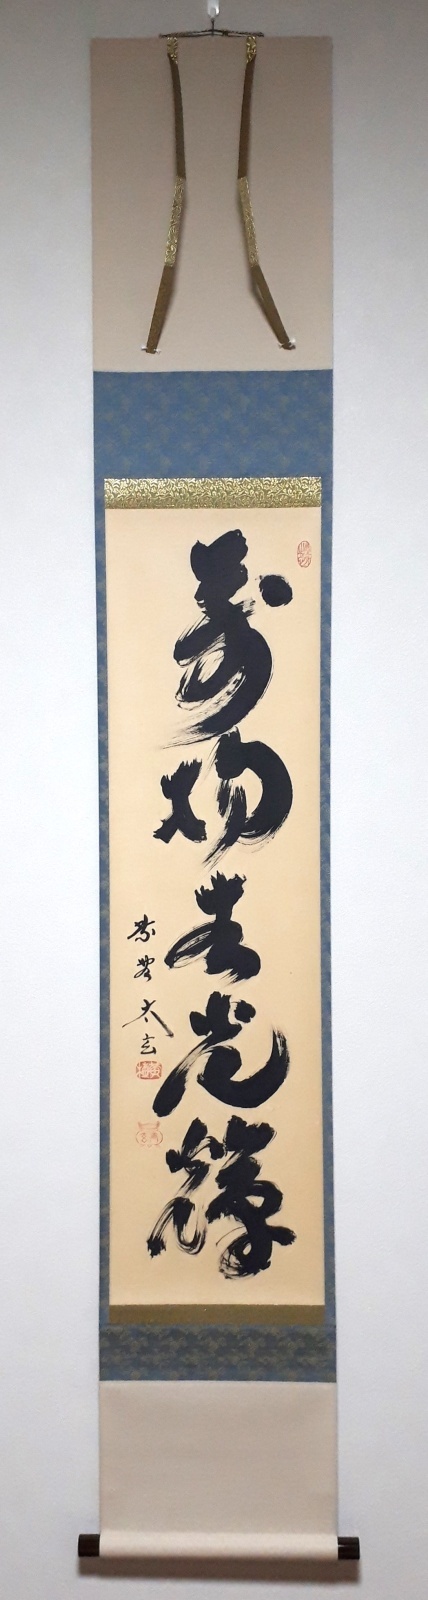 萬物生光輝
紫野 太玄